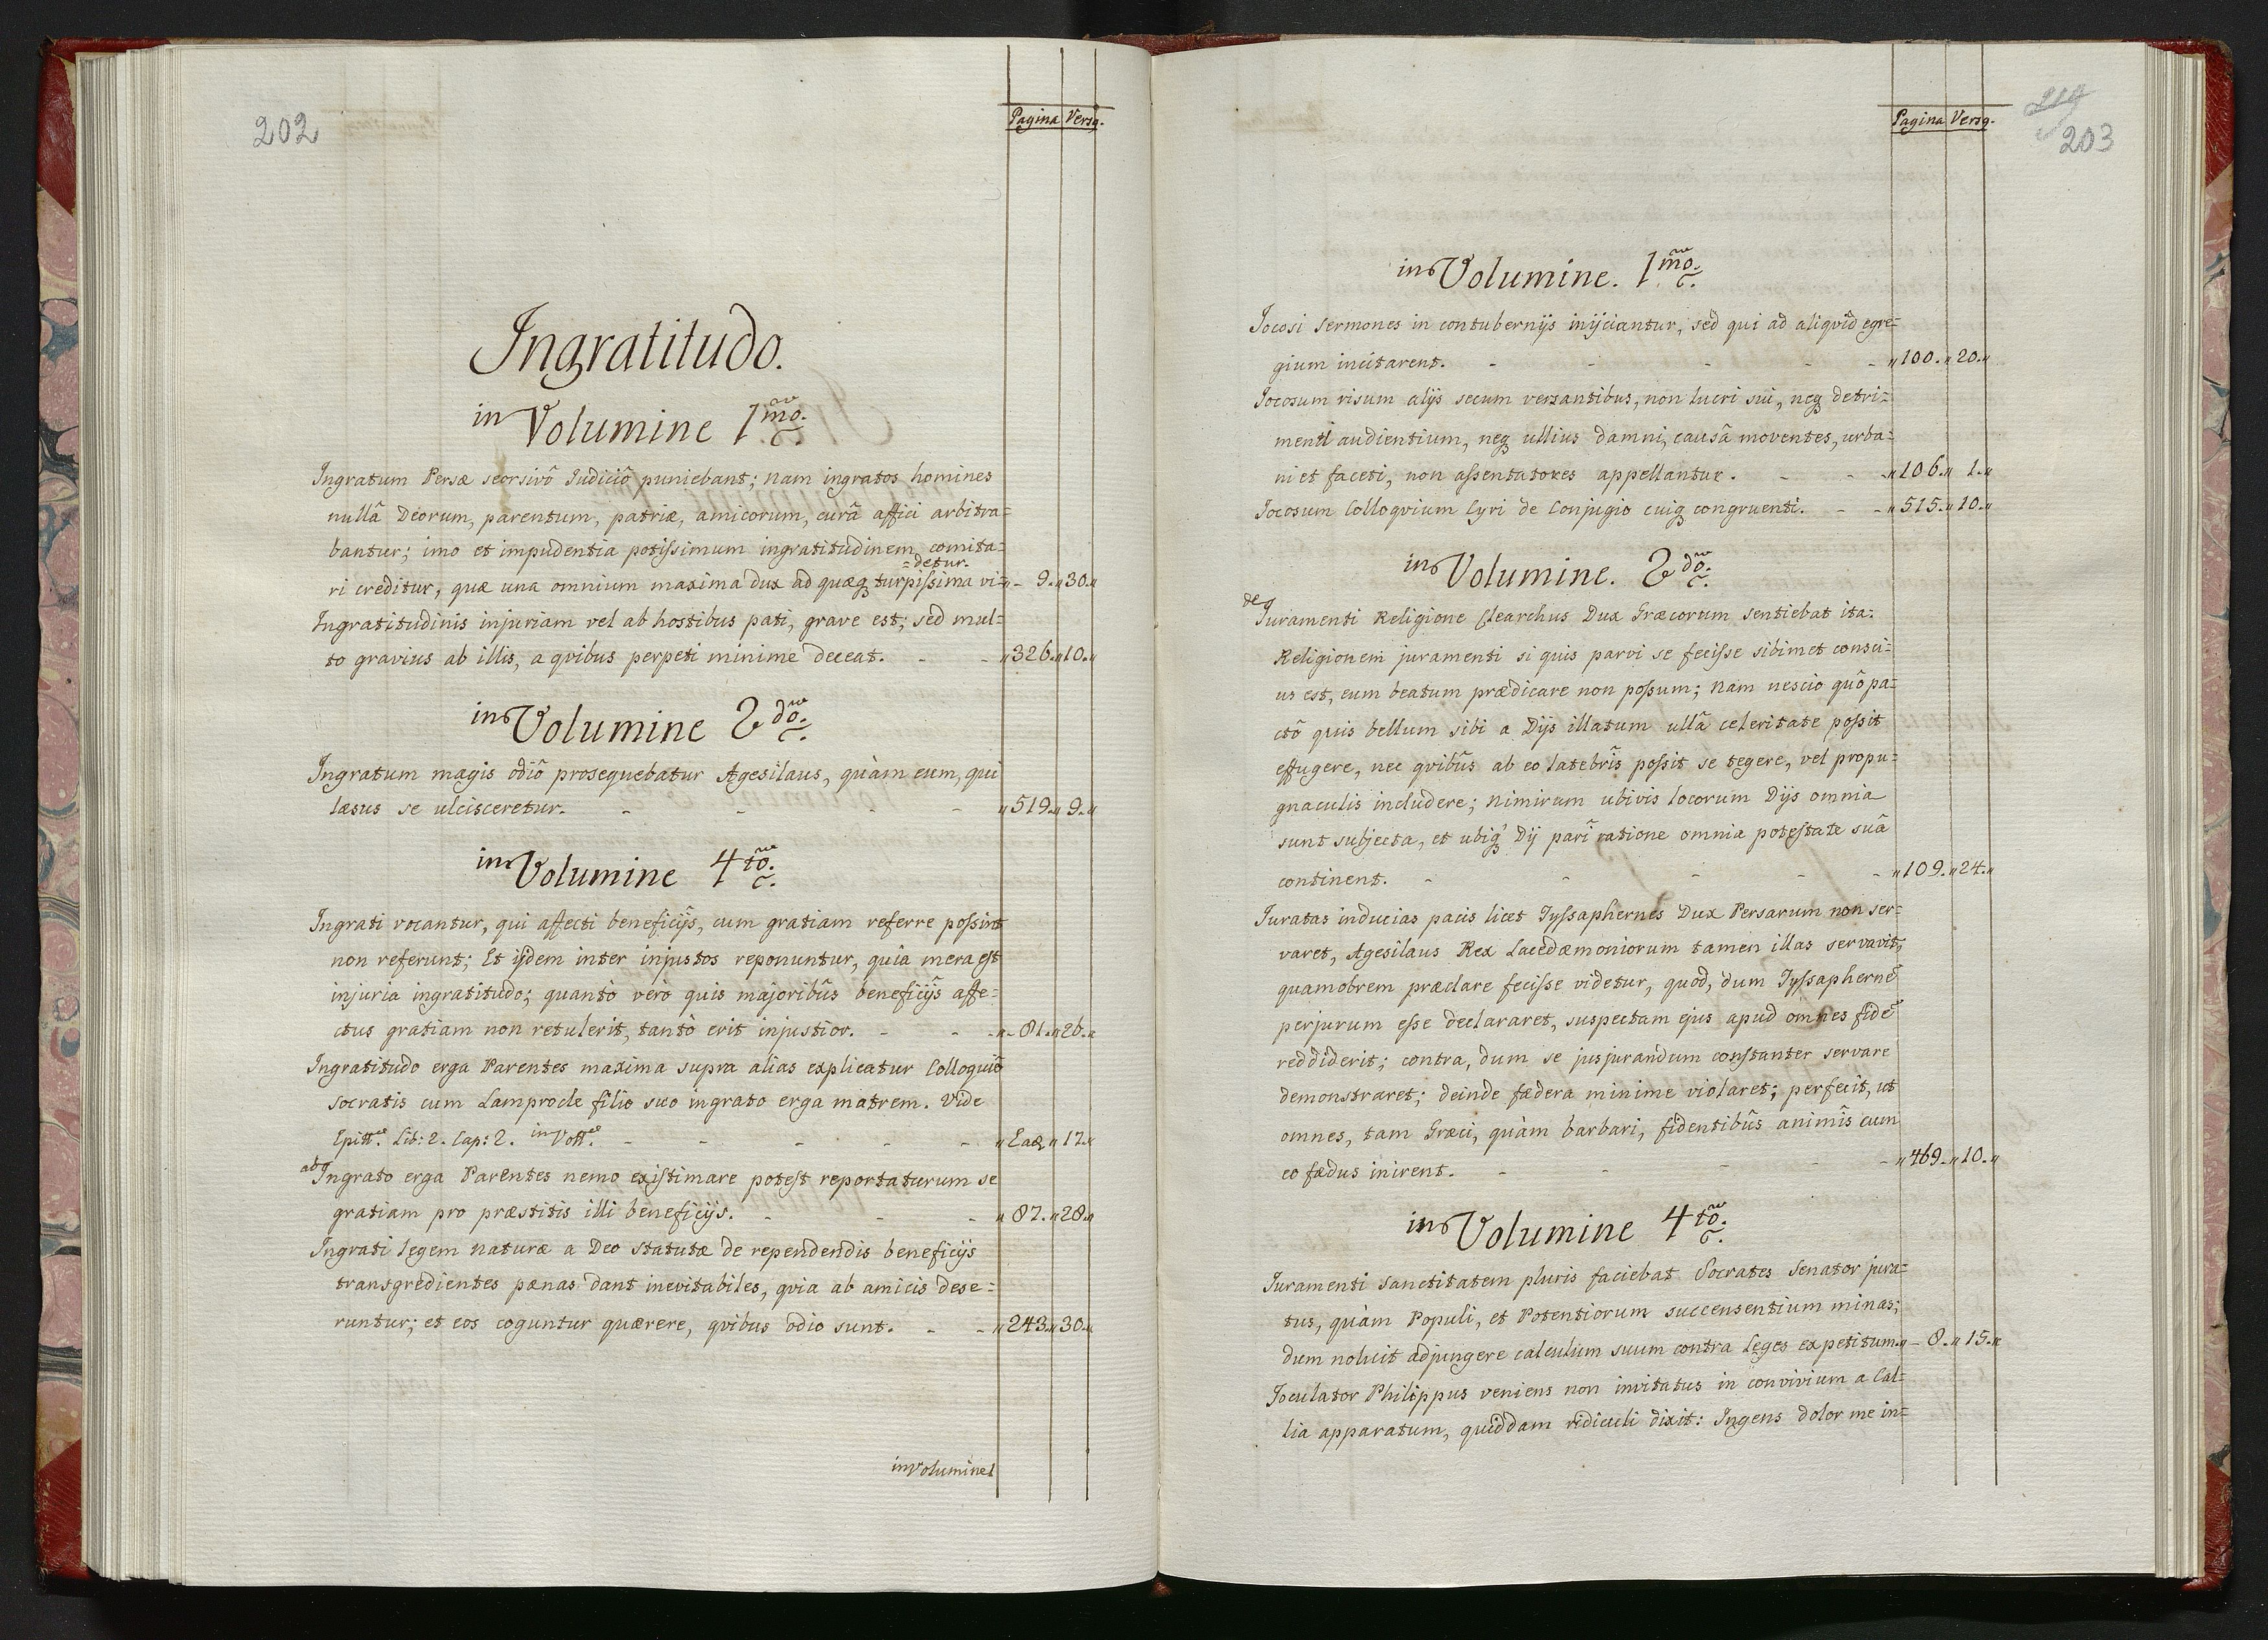 202
Pagina Versq.
Ingratitudo.
in Volumine 1mo.
Ingratum Persæ seorsivô Iudiciô puniebant; nam ingratos homines
nullâ Deorum, parentum, patriæ, amicorum, curâ affici arbitra=
bantur; imo et impudentia potissimum ingratitudinem comita=
=detur.
ri creditur, quæ una omnium maxima dux ad quæq turpissima vi= „- 9.„30.„
Ingratitudinis injuriam vel ab hostibus pati, grave est; sed mul=
to gravius ab illis, a qvibus perpeti minime deceat. - - „326.„10.„
in Volumine 2do.
Ingratum magis odiô prosequebatur Agesilaus, quàm eum, qui
læsus se ulcisceretur. - - - - „519.„9.„
in Volumine 4to.
Ingrati vocantur, qui affecti beneficijs, cum gratiam referre possint
non referunt; Et ijdem inter injustos reponuntur, quia mera est
injuria ingratitudo; quantò verò quis majoribûs beneficijs affe=
ctus gratiam non retulerit, tantò erit injustior. - - - „- 81.„26.„
Ingratitudo erga Parentes maxima supra alias explicatur Colloquiô
Socratis cum Lamprocle filio suo ingrato erga matrem. Vide
Epitt. Lib: 2. Cap: 2. in Vott. - - - - - „Eaq„17.„
ab Ingrato erga Parentes nemo existimare potest reportaturum se
gratiam pro præstitis illi beneficijs. - - - „87.„28.„
Ingrati legem naturæ a Deo statutæ de rependendis beneficijs
transgredientes pænas dant inevitabiles, qvia ab amicis dese=
runtur; et eos coguntur quærere, qvibus odio sunt. - - „243.„30.„
in Volumine 1
Pagina Versq.
203
in Volumine. 1mo.
Jocosi sermones in contubernijs inijciantur, sed qui ad aliqvid egre=
gium incitarent. - - - - - „100.„20.„
Jocosum risum alijs secum versantibus, non lucri sui, neq detri=
menti audientium, neq ullius damni, causâ moventes, urba=
ni et faceti, non assentatores appellantur. - - „106.„1.„
Jocosum Colloqvium Cyri de Conjugio cuiq congruenti. - - „515.„10.„
in Volumine. 2do.
de Iuramenti Religione Clearchus Dux Græcorum sentiebat ita.
Religionem juramenti si quis parvi se fecisse sibimet consci=
us est, eum beatum prædicare non possum; nam nescio quô pa=
ctô quis bellum sibi a Dijs illatum ullâ celeritate possit
effugere, nec qvibûs ab eo latebrîs possit se tegere, vel propu=
gnaculis includere; nimirum ubivis locorum Dijs omnia
sunt subjecta, et ubiq Dij pari ratione omnia potestate suâ
continent. - - - - - „109.„24.„
Iuratas inducias pacis licet Tyssaphernes Dux Persarum non ser=
varet, Agesilaus Rex Lacedæmoniorum tamen illas servavit,
quamobrem præclare fecisse videtur, quod, dum Tyssaphernẽ
perjurum esse declararet, suspectam ejus apud omnes fidẽ
reddiderit; contra, dum se jusjurandum constanter servare
demonstraret; deinde fædera minime violaret; perfecit, ut
omnes, tam Græci, quàm barbari, fidentibûs animîs cum
eo fædus inirent. - - - - - „469.„10.„
in Volumine 4to.
Iuramenti sanctitatem pluris faciebat Socrates Senator jura=
tus, quàm Populi, et Potentiorum succensentium minas;
dum noluit adjungere calculum suum contra Leges expetitum. „- 8.„15.„
Joculator Philippus veniens non invitatus in convivium a Cal=
lia apparatum, quiddam ridiculi dixit: Ingens dolor me in=